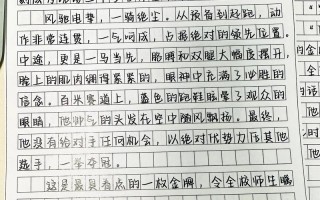 风驰电掣，一骑绝尘，从预备到起跑，动
作非常连贯，一气呵成，占据绝对的领先位置。
中途，更是一马当先，胳膊和双腿大幅度摆开，
脸上的肌肉绷得紧紧的，眼神中充满了必胜的
信念。百米赛道上，蓝色的跑鞋脍晕了观众的
眼睛，他帅气的头发在空中随风飘扬。最终，
他没有给对手任何机会，以绝对优势力压其他
选手，一举夺冠。
这是最具看点的一枚金牌，令全校师生瞩